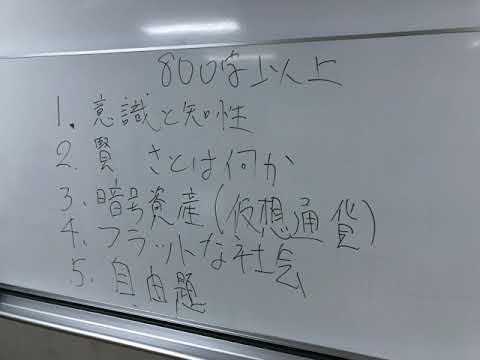 800字以上
1. 意識と知性
2. 賢 さとは何か
3. 暗号資産(仮想通貨)
4. フラットな社会
5. 自由題